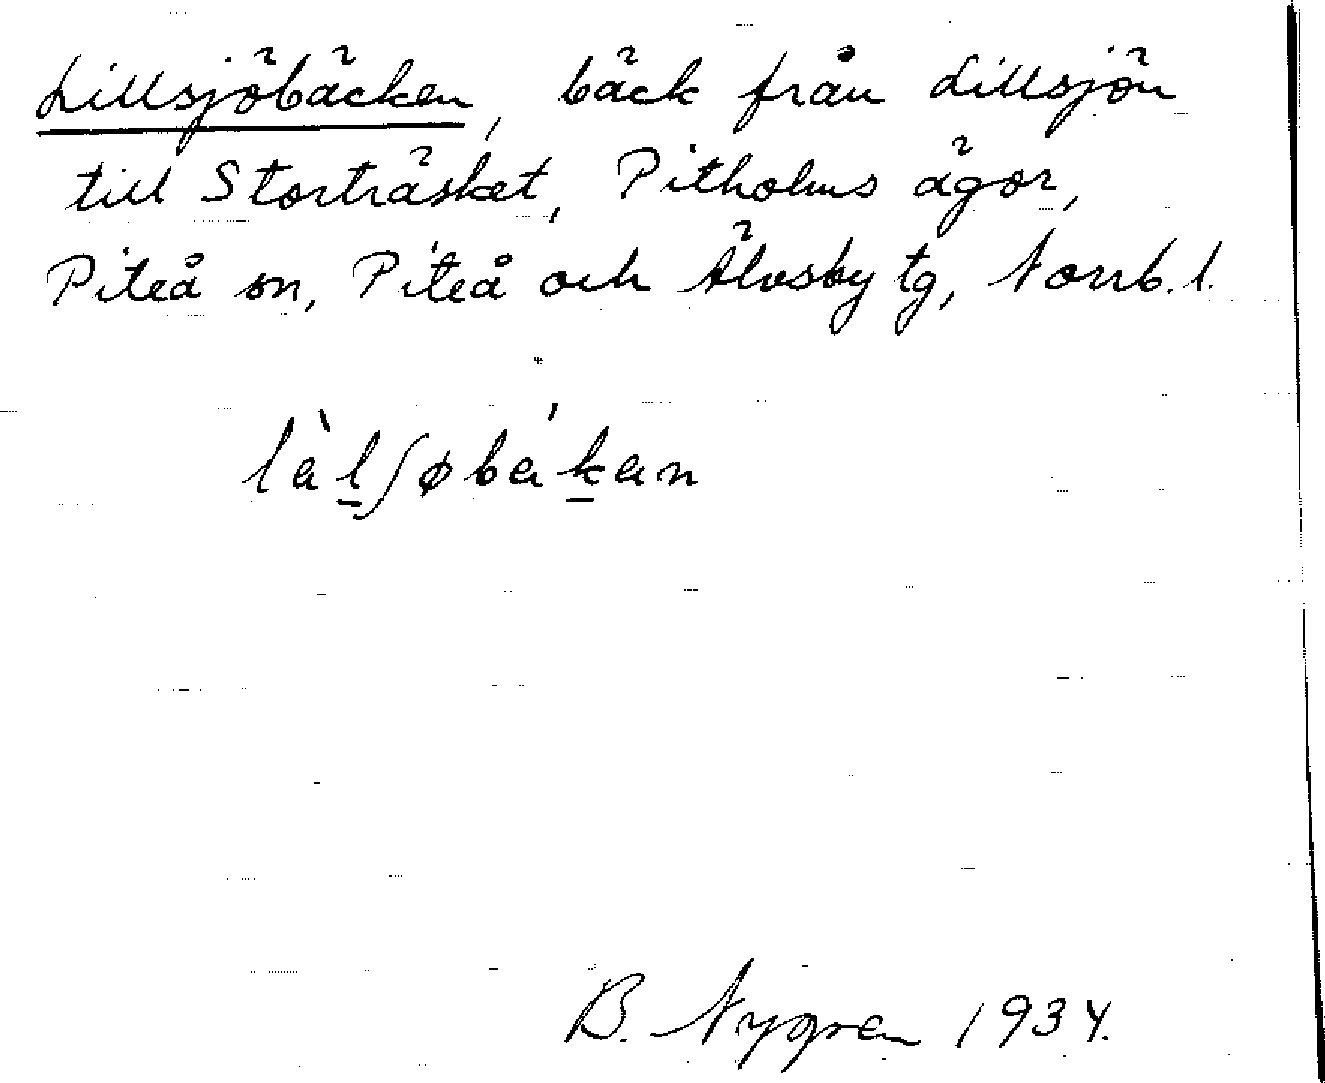 Lillsjöbäcken, bäck från Lillsjön
till Storträsket, Pitholms ägor,
Piteå sn, Piteå och Älvsby tg, Norrb. l.
B. Nygren 1934.